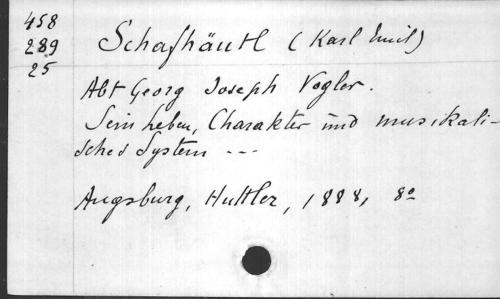 458
289
25
Schafhäutl (Karl Emil)
Abt Georg Joseph Vogler.
Sein Leben, Charakter und musikali-
sches System ---
Augsburg, Huttler, 1888, 8º